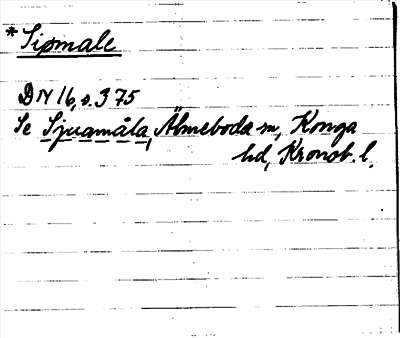 *Siømale
DN 16, s. 375
Se Sjuamåla, Älmeboda sn, Konga
hd, Kronob. l.